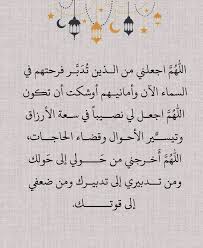 اللَّهُمَّ اجعلني من الـذين تُدَبَّر فرحتهم في
السماء الآن وأمانيهم أوشكت أن تكون
اللَّهُمَّ اجعل لي نصيبـاً في سعة الأرزاق
وتيسـُّير الأحـوال وقضـاء الحاجـات،
اللَّهُمَّ أَخـرجني من حَـــولي إلى حَولك
ومن تـدبيري إلى تدبيـرك ومن ضعفي
إلى قوتـــــك.